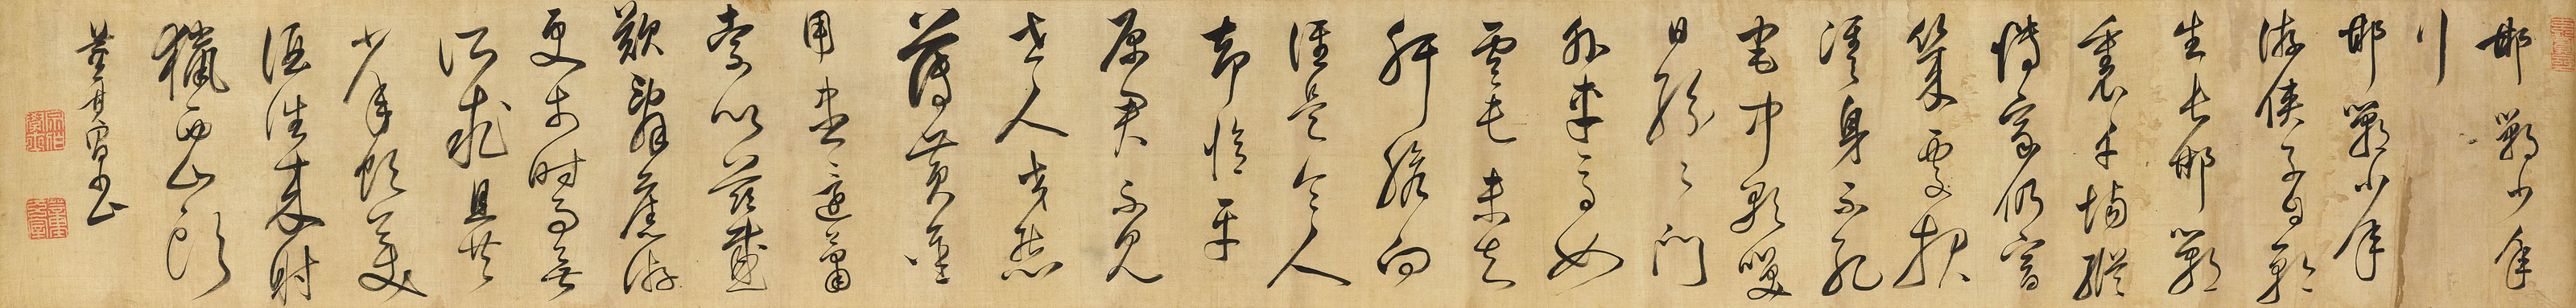 邯鄲少年
行
邯鄲少年
游俠子自矜
生長邯鄲
裏千場縱
博家仍富
幾處報
讎身不死
宅中歌笑
日紛紛門
外車馬如
雲屯未知
肝膽向
誰是令人
却憶平
原君不見
今人交態
薄黃金
用盡還蕭
索以茲感
歎辭舊游
更於時事無
所求且共
少年飲美
酒往來射
獵西山頭
董其昌書
宗伯學士
董氏玄宰